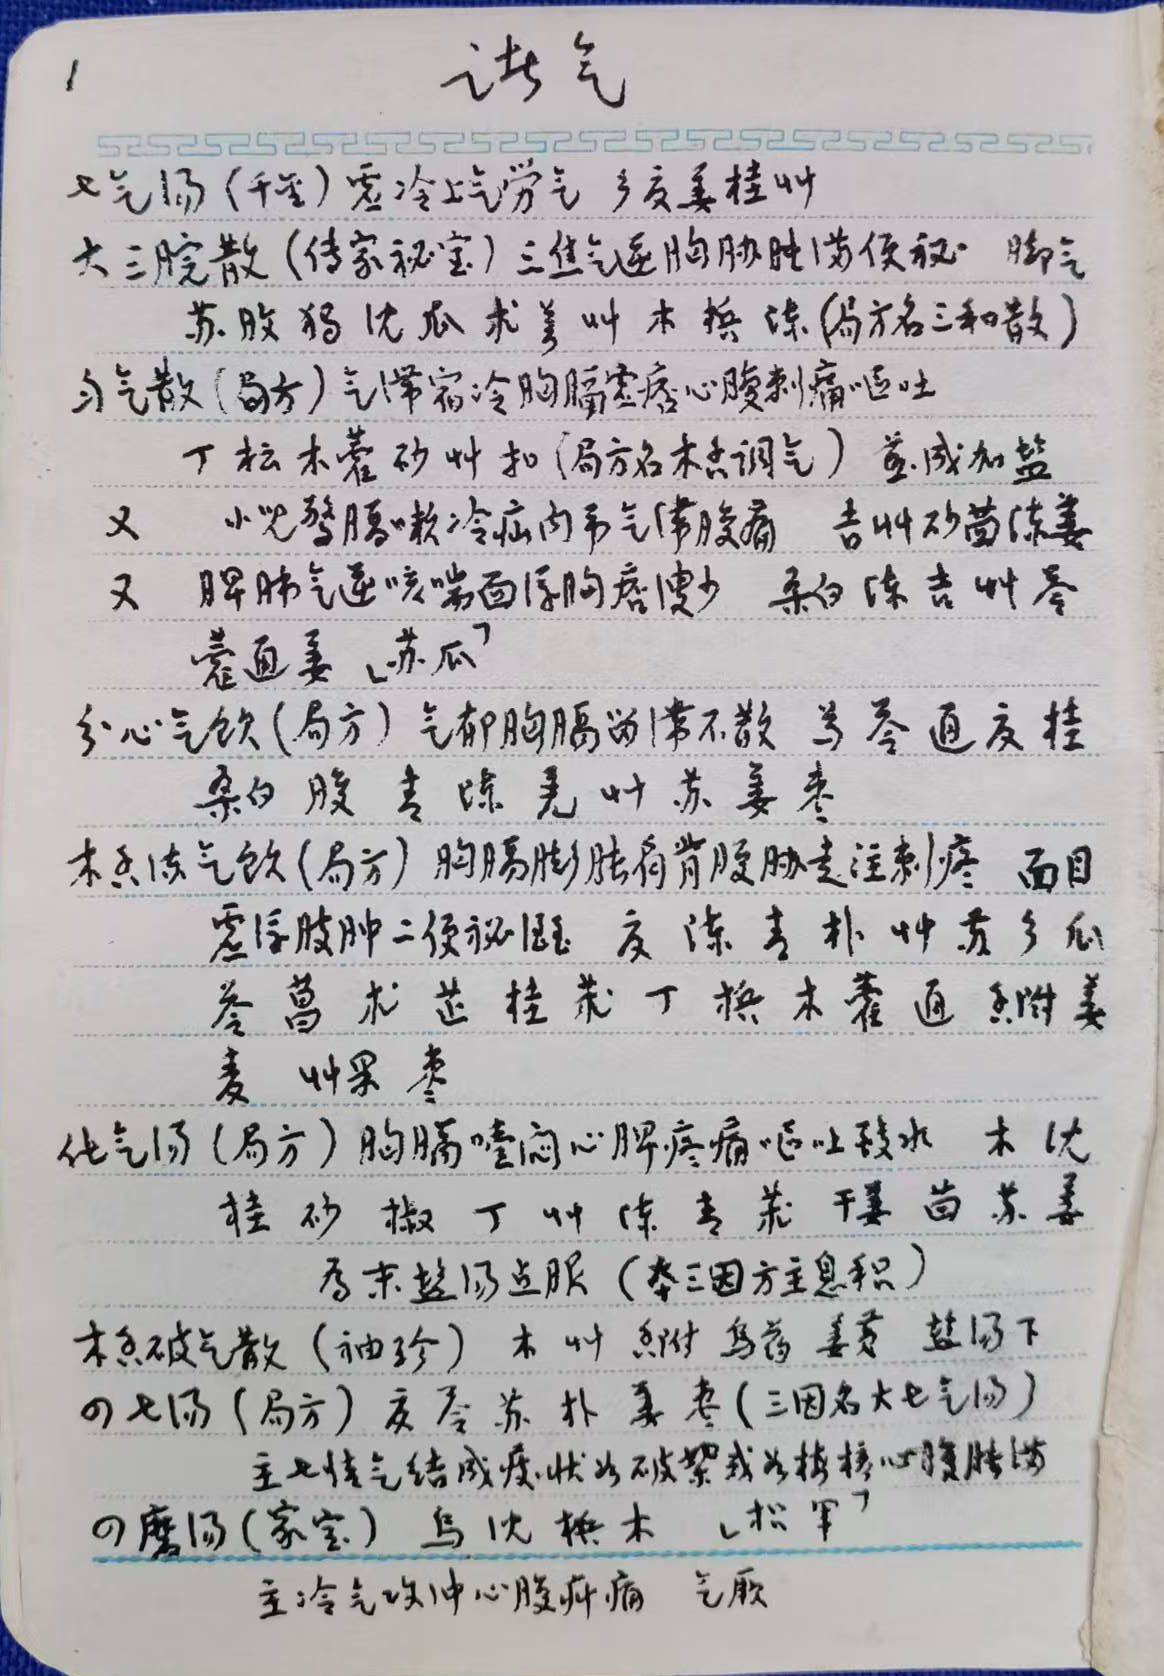 1
诸气
七气汤（千金）虚冷上气劳气 夕夏姜桂艸
大三脘散（传家秘宝）三焦气逆胸胁胀满便秘 脚气
苏腹独沈瓜术芎艸木槟陈（局方名三和散）
匀气散（局方）气滞宿冷胸膈虚痞心腹刺痛呕吐
丁松木藿砂艸扣（局方名木香调气）盐咸加盐
又 小儿膈嗽冷疝内吊气滞腹痛 吉艸砂茴陈姜
又 脾肺气逆咳喘面浮胸痞溲少 桑白陈吉艸苓
藿通姜「苏瓜」
分心气饮（局方）气郁胸膈留滞不散 芍苓通夏桂
桑白腹青陈羌艸苏姜枣
木香流气饮（局方）胸膈膨胀肩背腹胁走注刺疼 面目
虚浮肢肿二便秘涩 夏陈青朴艸苏夕瓜
苓菖术芷桂莪丁槟木藿通香附姜
麦 艸果枣
化气汤（局方）胸膈噎闷心脾疼痛呕吐酸水 木沈
桂砂椒丁艸陈青莪干姜茴苏姜
为末盐汤点服（本三因方主息积）
木香破气散（袖珍）木艸香附乌药姜黄 盐汤下
の七汤（局方）夏苓苏朴姜枣（三因名大七气汤）
主七情气结成痰状如破絮或如梅核心腹胀满
の磨汤（家宝）乌沈槟木「松军」
主冷气攻冲心腹疞痛 气厥